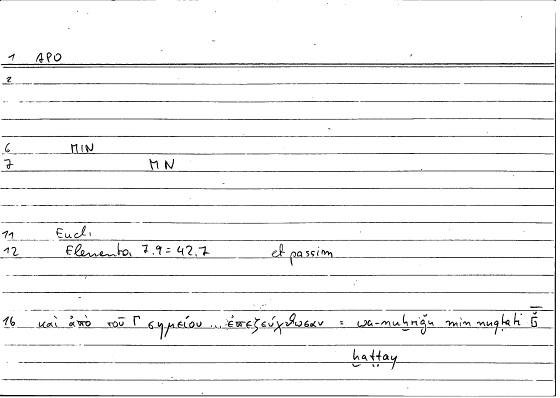 1 APO
2
6 MIN
7 MN
11 Eucl.
12 Elementa 7.9 = 42,7 et passim
16 καὶ ἀπὸ τοῦ Γ σημείου ... ἐπεζεύχθωσαν = wa-nuḫriǧu min nuqṭati Ǧ
ḫaṭṭay